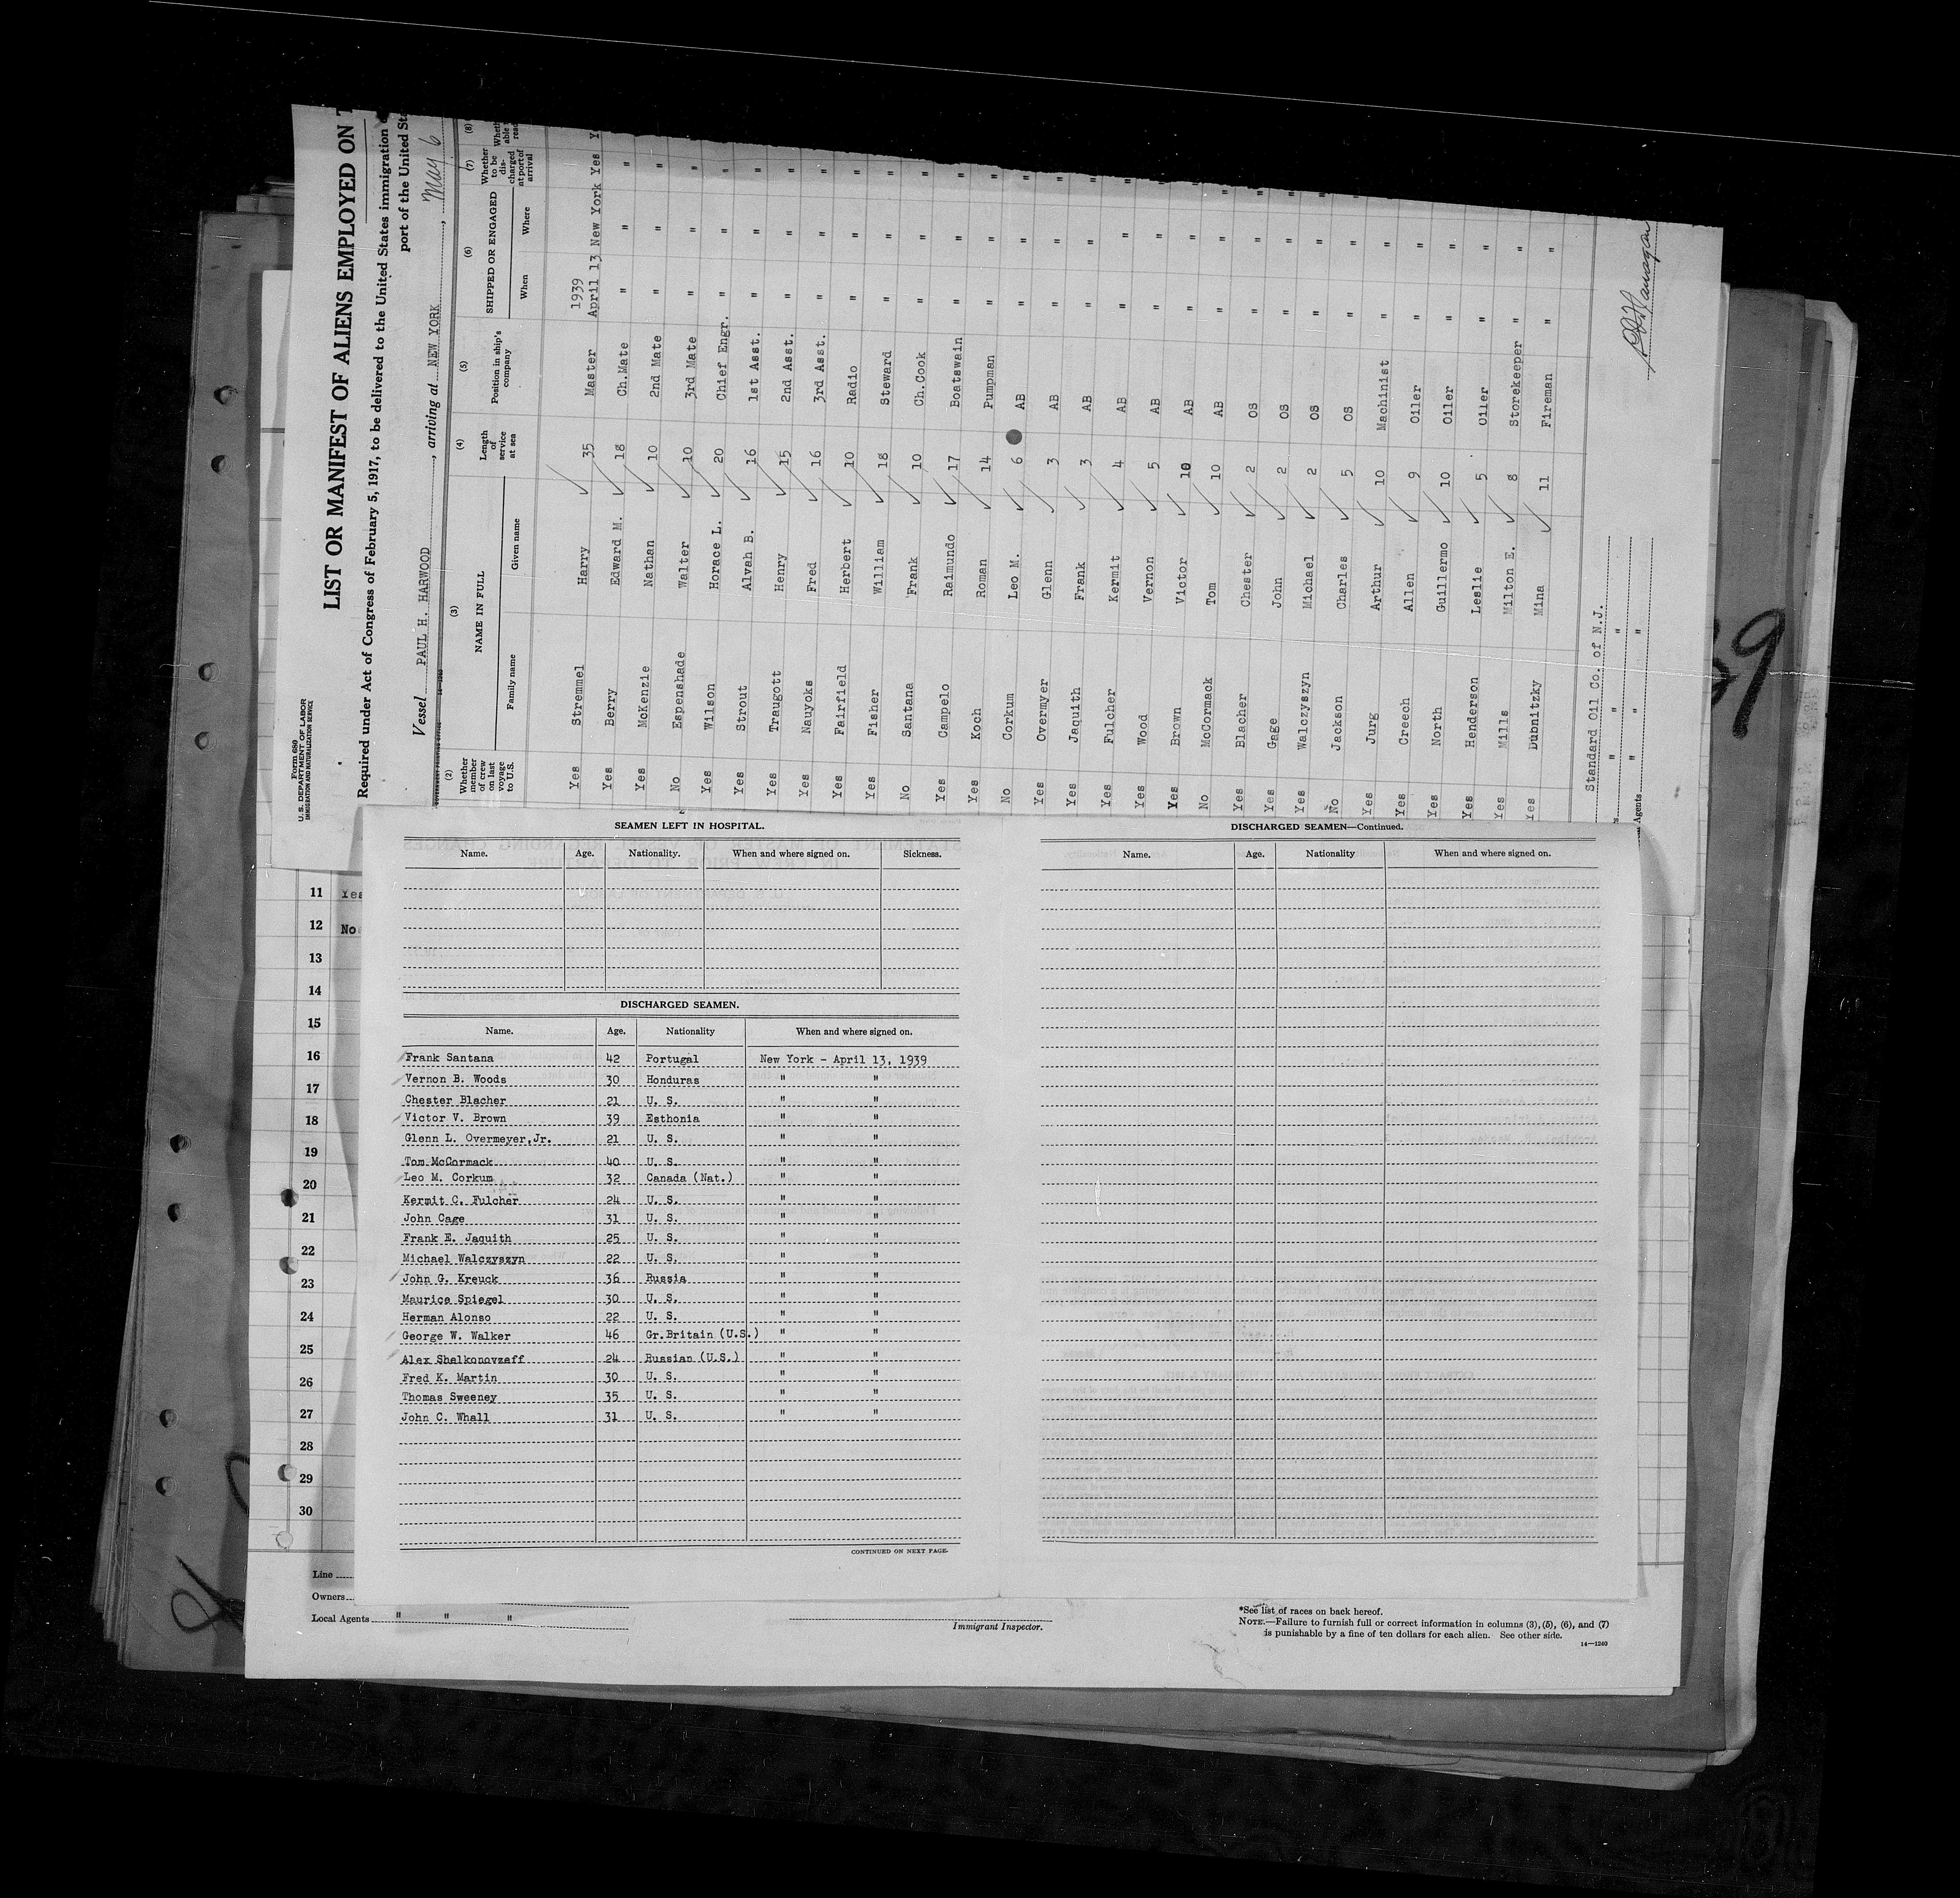 Form 680
U. S. DEPARTMENT OF LABOR
IMMIGRATION AND NATURALIZATION SERVICE
LIST OR MANIFEST OF ALIENS EMPLOYED ON T
Required under Act of Congress of February 5, 1917, to be delivered to the United States immigration
port of the United Sta
Vessel PAUL H. HARWOOD, arriving at NEW YORK, May 6
(2) (3) (4) (5) (6) (7) (8)
Whether member of crew on last voyage to U.S. NAME IN FULL Family name Given name Length of service at sea Position in ship's company SHIPPED OR ENGAGED When Where Whether to be discharged at port of arrival
1939
Yes Stremmel Harry 35 Master April 13 New York Yes Y
Yes Berry Edward M. 18 Ch.Mate " " "
Yes McKenzie Nathan 10 2nd Mate " " "
No Espenshade Walter 10 3rd Mate " " "
Yes Wilson Horace L. 20 Chief Engr. " " "
Yes Strout Alvah B. 16 1st Asst. " " "
Yes Traugott Henry 15 2nd Asst. " " "
Yes Nauyoks Fred 16 3rd Asst. " " "
Yes Fairfield Herbert 10 Radio " " "
Yes Fisher William 18 Steward " " "
No Santana Frank 10 Ch.Cook " " "
Yes Campelo Raimundo 17 Boatswain " " "
Yes Koch Roman 14 Pumpman " " "
No Corkum Leo M. 6 AB " " "
Yes Overmyer Glenn 3 AB " " "
Yes Jaquith Frank 3 AB " " "
Yes Fulcher Kermit 4 AB " " "
Yes Wood Vernon 5 AB " " "
Yes Brown Victor 10 AB " " "
No McCormack Tom 10 AB " " "
Yes Blacher Chester 2 OS " " "
Yes Gage John 2 OS " " "
Yes Walczyszyn Michael 2 OS " " "
No Jackson Charles 5 OS " " "
Yes Jurg Arthur 10 Machinist " " "
Yes Creech Allen 9 Oiler " " "
Yes North Guillermo 10 Oiler " " "
Yes Henderson Leslie 5 Oiler " " "
Yes Mills Milton E. 8 Storekeeper " "
Yes Dubnitzky Mina 11 Fireman " "
Standard Oil Co. of N.J.
" " "
Agents " " "
SEAMEN LEFT IN HOSPITAL.
Name. Age. Nationality. When and where signed on. Sickness.
DISCHARGED SEAMEN.
Name. Age. Nationality When and where signed on.
Frank Santana 42 Portugal New York - April 13, 1939
Vernon B. Woods 30 Honduras " "
Chester Blacher 21 U. S. " "
Victor V. Brown 39 Esthonia " "
Glenn L. Overmeyer,Jr. 21 U. S. " "
Tom McCormack 40 U. S. " "
Leo M. Corkum 32 Canada (Nat.) " "
Kermit C. Fulcher 24 U. S. " "
John Cage 31 U. S. " "
Frank E. Jaquith 25 U. S. " "
Michael Walczyszyn 22 U. S. " "
John G. Kreuck 36 Russia " "
Maurice Spiegel 30 U. S. " "
Herman Alonso 22 U. S. " "
George W. Walker 46 Gr.Britain (U.S.) " "
Alex Shelkonovzeff 24 Russian (U.S.) " "
Fred K. Martin 30 U. S. " "
Thomas Sweeney 35 U. S. " "
John C. Whall 31 U. S. " "
CONTINUED ON NEXT PAGE.
DISCHARGED SEAMEN—Continued.
Name. Age. Nationality When and where signed on.
11 Yes
12 No
13
14
15
16
17
18
19
20
21
22
23
24
25
26
27
28
29
30
Line
Owners
Local Agents " " "
Immigrant Inspector.
*See list of races on back hereof.
NOTE.—Failure to furnish full or correct information in columns (3), (5), (6), and (7)
is punishable by a fine of ten dollars for each alien. See other side.
14—1240
39